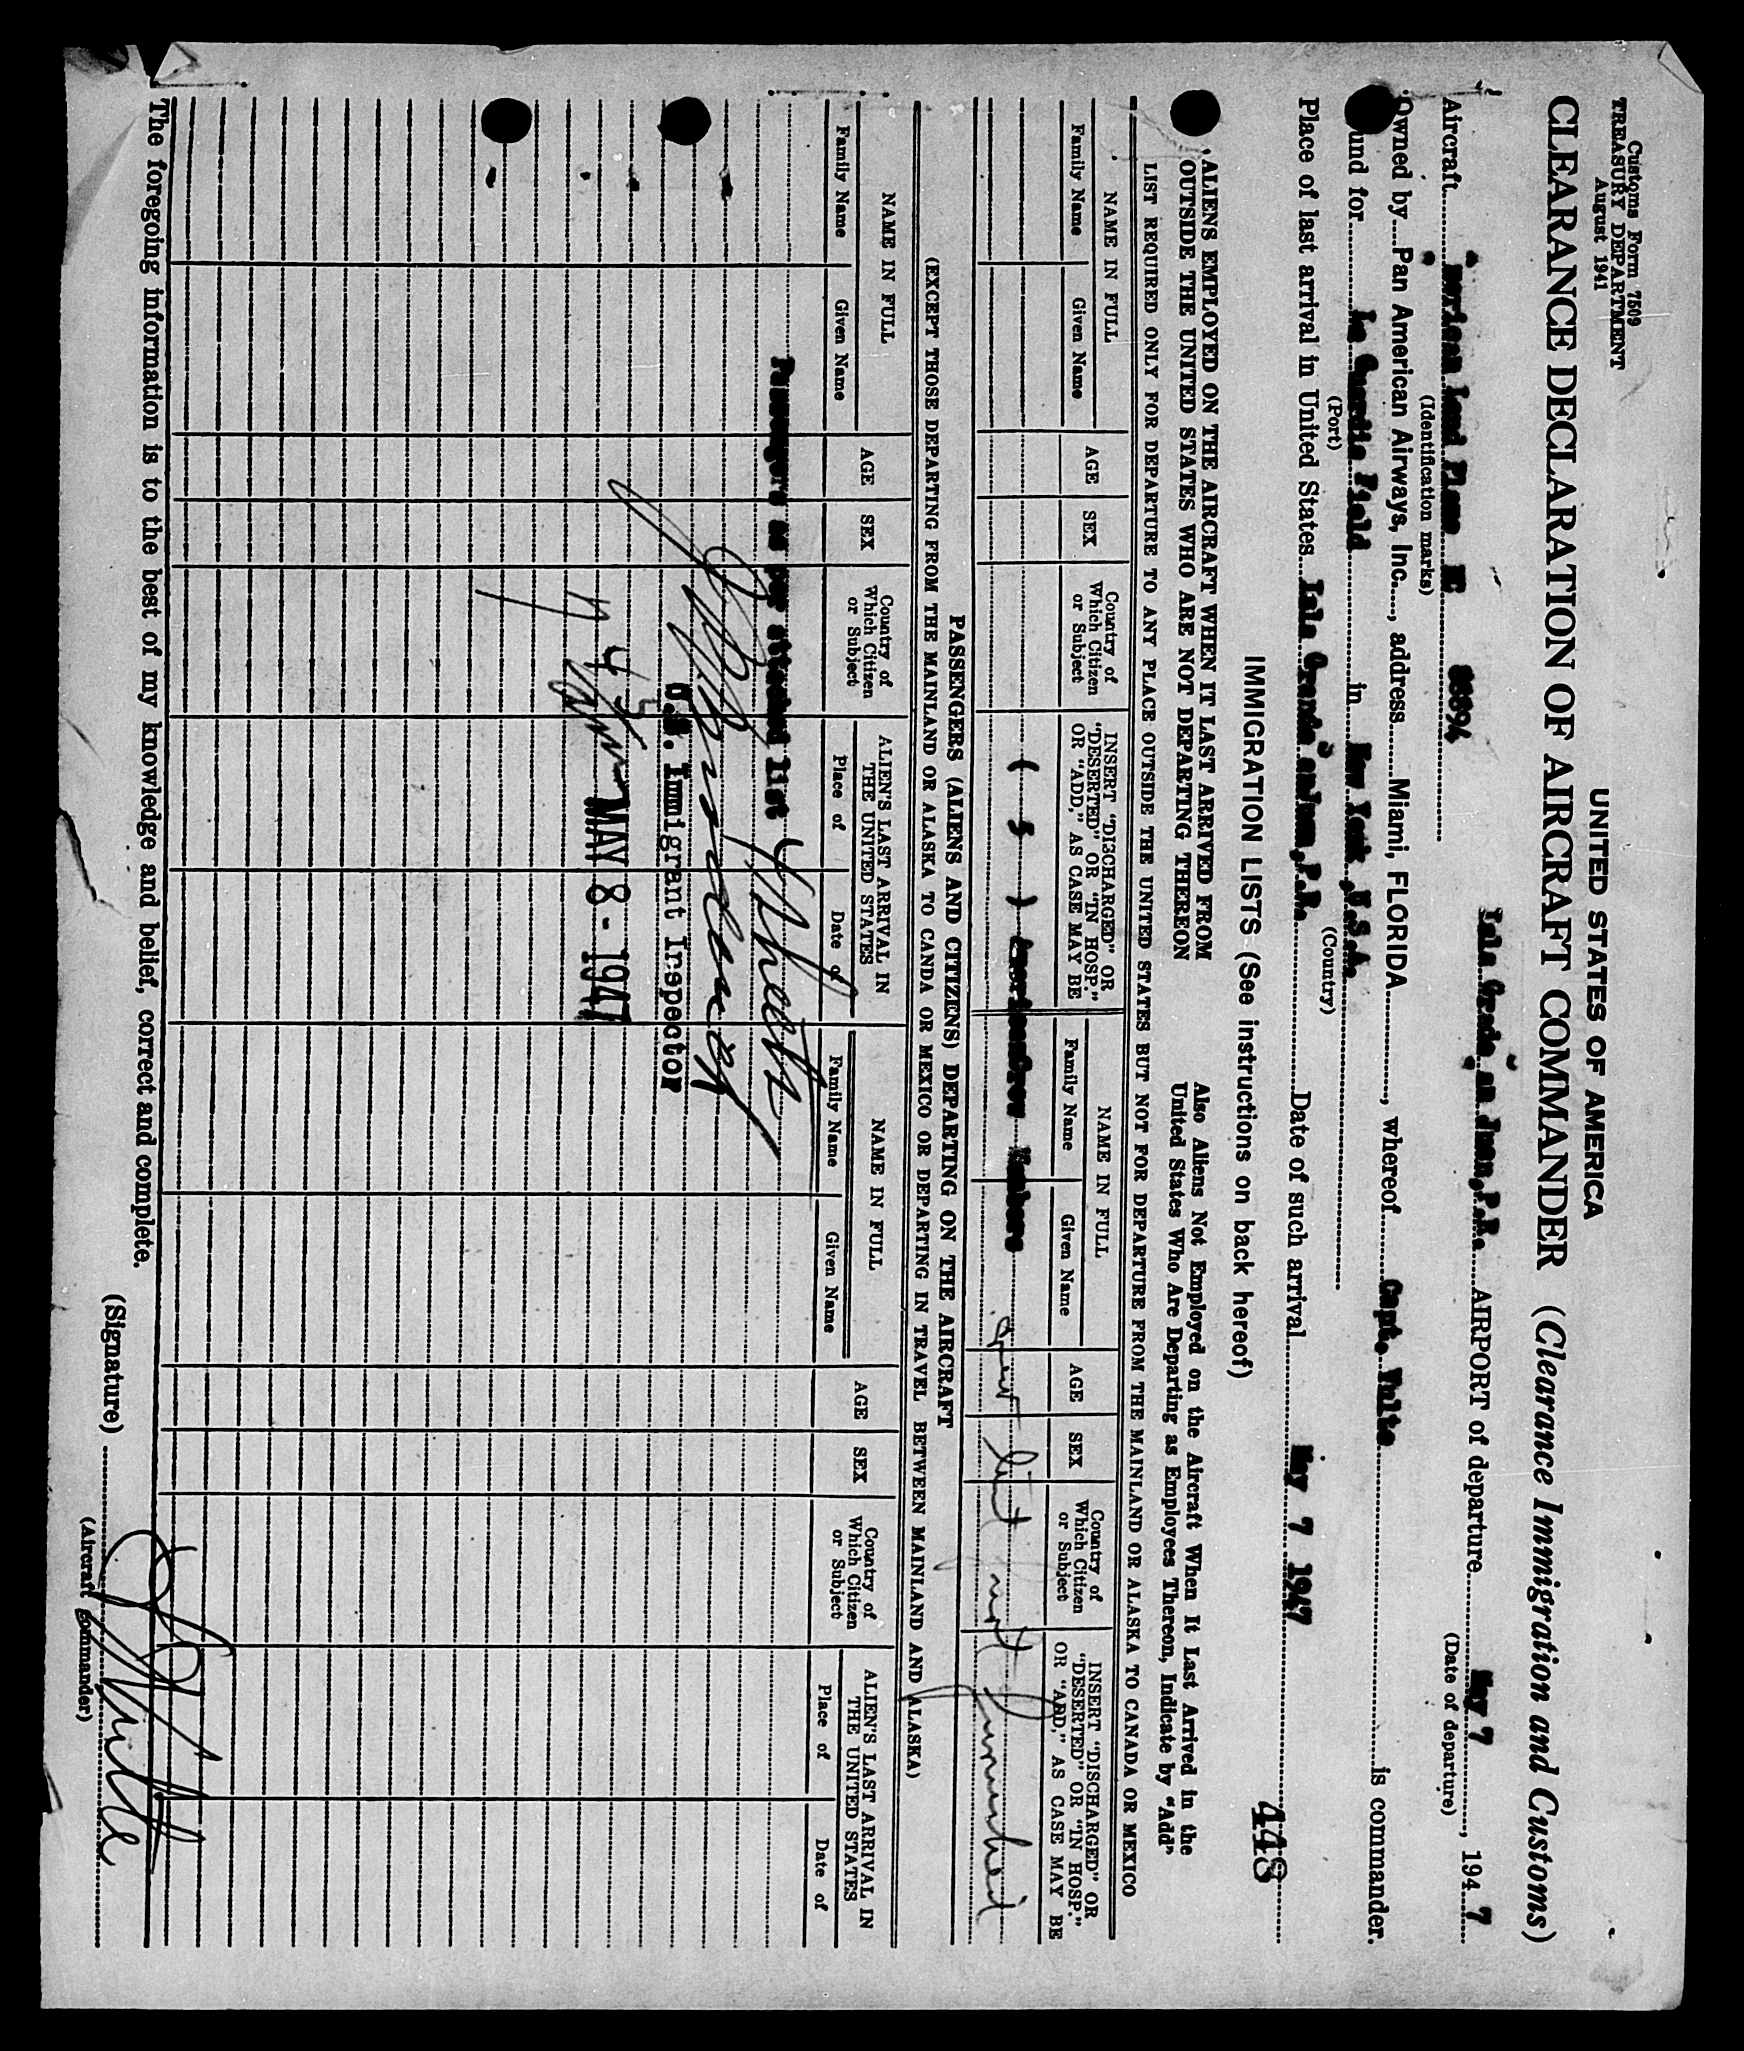 Customs Form 7509
TREASURY DEPARTMENT
August 1941
UNITED STATES OF AMERICA
CLEARANCE DECLARATION OF AIRCRAFT COMMANDER (Clearance Immigration and Customs)
Isla Grade, San Juan, P.R. AIRPORT of departure May 7, 1947
(Date of departure)
Aircraft American Land Plane NC 88894
(Identification marks)
Owned by Pan American Airways, Inc., address Miami, FLORIDA, whereof Capt. is commander.
und for La Guardia Field in New York, U.S.A.
(Port) (Country)
Place of last arrival in United States Isla Grande, San Juan, P.R. Date of such arrival May 7 1947
448
IMMIGRATION LISTS (See instructions on back hereof)
ALIENS EMPLOYED ON THE AIRCRAFT WHEN IT LAST ARRIVED FROM OUTSIDE THE UNITED STATES WHO ARE NOT DEPARTING THEREON
Also Aliens Not Employed on the Aircraft When It Last Arrived in the United States Who Are Departing as Employees Thereon, Indicate by "Add"
LIST REQUIRED ONLY FOR DEPARTURE TO ANY PLACE OUTSIDE THE UNITED STATES BUT NOT FOR DEPARTURE FROM THE MAINLAND OR ALASKA TO CANADA OR MEXICO
NAME IN FULL
Family Name Given Name
AGE
SEX
Country of Which Citizen or Subject
INSERT "DISCHARGED" OR "DESERTED" OR "IN HOSP." OR "ADD," AS CASE MAY BE
NAME IN FULL
Family Name Given Name
AGE
SEX
Country of Which Citizen or Subject
INSERT "DISCHARGED" OR "DESERTED" OR "IN HOSP." OR "ADD," AS CASE MAY BE
( 5 ) American Crew Members
list not furnished
PASSENGERS (ALIENS AND CITIZENS) DEPARTING ON THE AIRCRAFT
(EXCEPT THOSE DEPARTING FROM THE MAINLAND OR ALASKA TO CANDA OR MEXICO OR DEPARTING IN TRAVEL BETWEEN MAINLAND AND ALASKA)
NAME IN FULL
Family Name Given Name
AGE
SEX
Country of Which Citizen or Subject
ALIEN'S LAST ARRIVAL IN THE UNITED STATES
Place of Date of
NAME IN FULL
Family Name Given Name
AGE
SEX
Country of Which Citizen or Subject
ALIEN'S LAST ARRIVAL IN THE UNITED STATES
Place of Date of
Passengers as per attached list 4 Sheets
U.S. Immigrant Inspector
MAY 8 - 1947
The foregoing information is to the best of my knowledge and belief, correct and complete.
(Signature)
(Aircraft commander)